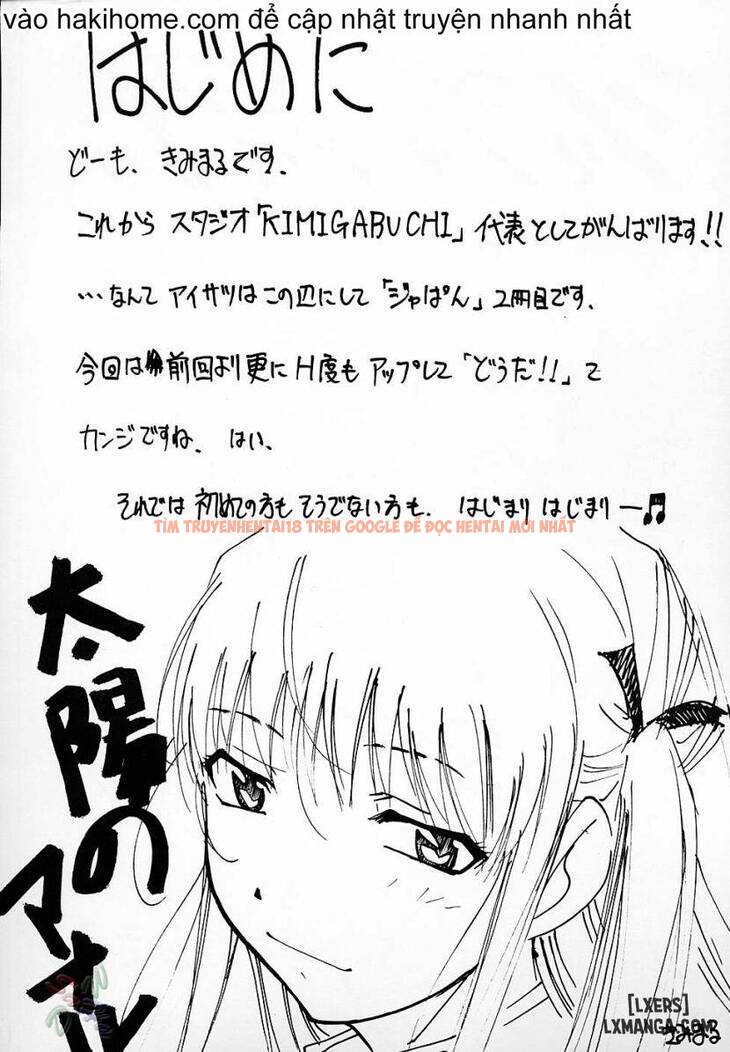 vào hakihome.com để cập nhật truyện nhanh nhất
はじめに
どーも、きみまるです。
これから スタジオ「KIMIGABUCHI」代表としてがんばります!!
…なんて アイサツはこの辺にして「ジャぱん」2冊目です。
今回は前回より更に H度も アップして「どうだ!!」て
カンジですね、 はい、
それでは 初めての方も そうでない方も、 はじまり はじまりー♫
TÌM TRUYENHENTAI18 TRÊN GOOGLE ĐỂ ĐỌC HENTAI MỚI NHẤT
太陽の
マオ
[LXERS]
LXMANGA.COM
きみまる